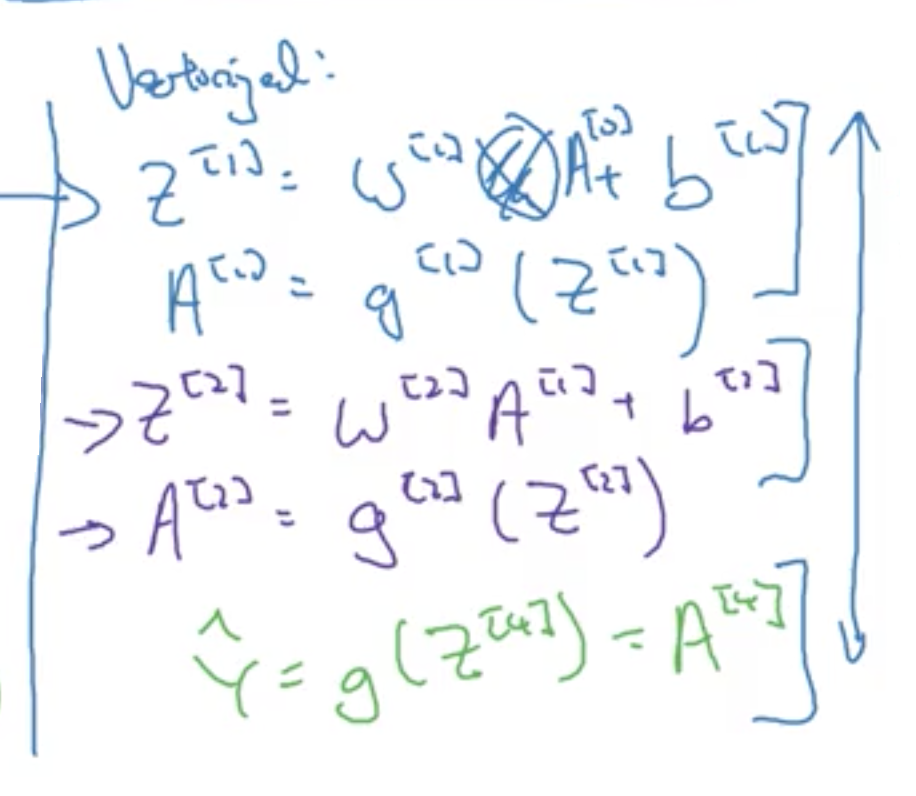 Vectorized:
Z^[1] = W^[1] A^[0] + b^[1]
A^[1] = g^[1] (Z^[1])
→ Z^[2] = W^[2] A^[1] + b^[2]
→ A^[2] = g^[2] (Z^[2])
Ŷ = g(Z^[4]) = A^[4]